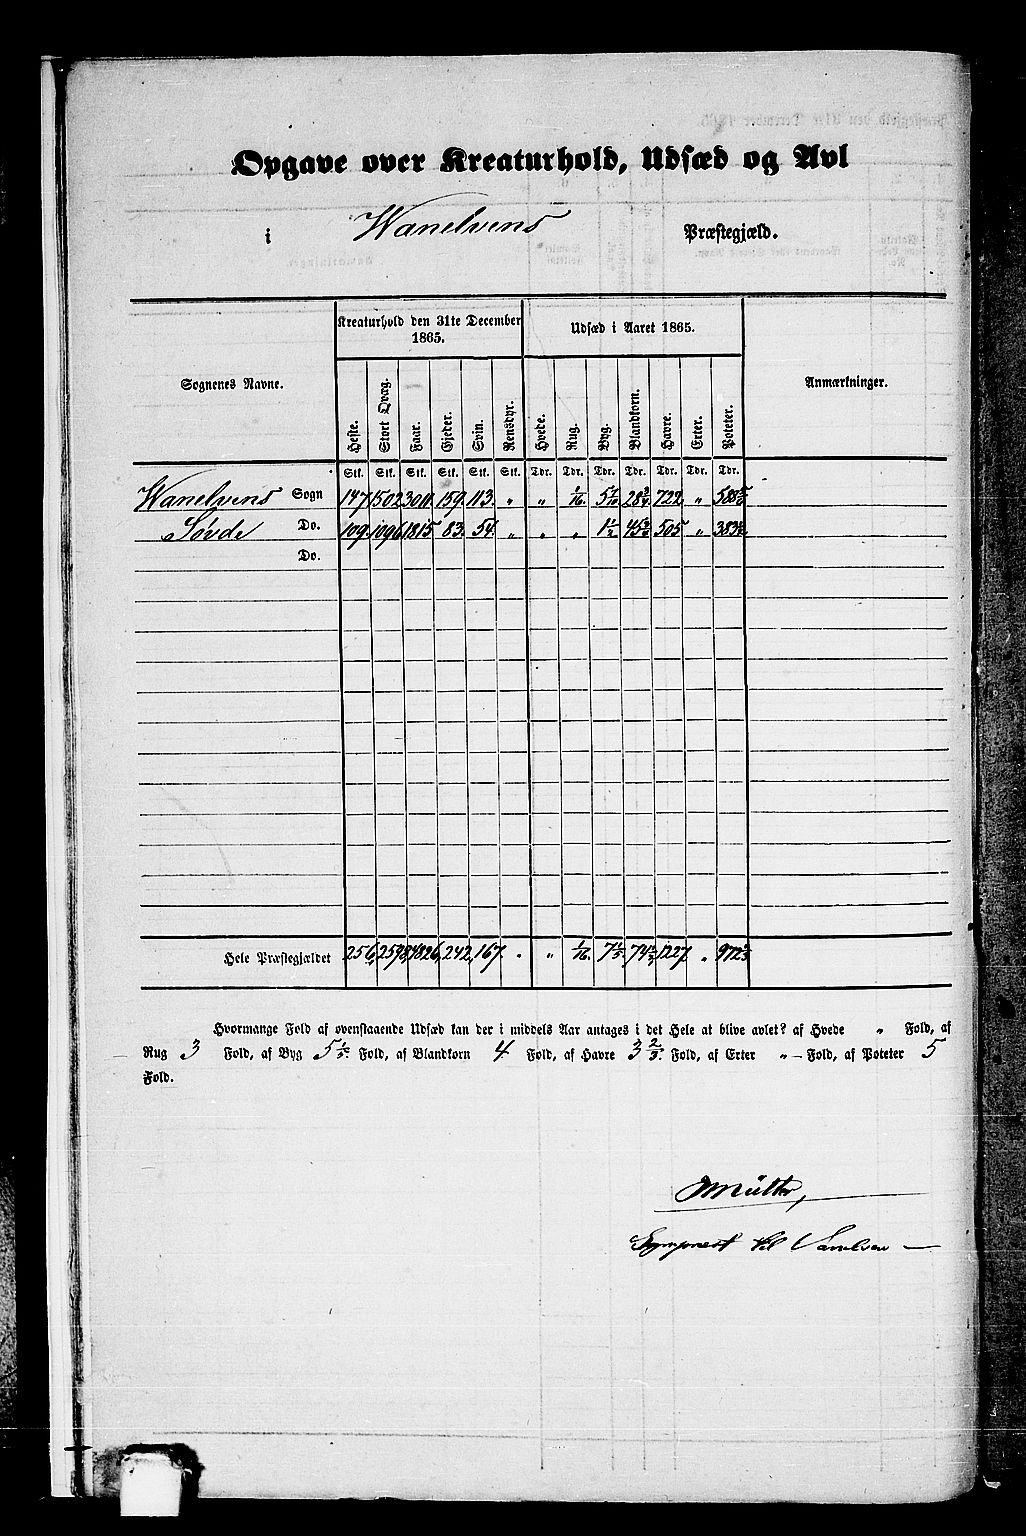 Opgave over Kreaturhold, Udsæd og Avl
i Wanelvens Præstegjæld.
Sognenes Navne. Kreaturhold den 31te December 1865. Udsæd i Aaret 1865. Anmærkninger.
Heste. Stort Qvæg. Faar. Gjeder. Svin. Rensdyr. Hvede. Rug. Byg. Blandkorn. Havre. Erter. Poteter.
Stk. Stk. Stk. Stk. Stk. Stk. Tdr. Tdr. Tdr. Tdr. Tdr. Tdr. Tdr.
Wanelvens Sogn 147. 1502 3011. 159. 113. " " 1/16. 722 "
Søvde Do. 109. 1096. 1815. 83. 54. " " " 1 1/2 505 "
Do.
Hele Præstegjældet 256, 2598, 4826, 242, 167. " " 1/16. 1227. "
Hvormange Fold af ovenstaaende Udsæd kan der i middels Aar antages i det Hele at blive avlet? af Hvede " Fold, af
Rug 3 Fold, af Byg 5 1/3. Fold, af Blandkorn 4 Fold, af Havre 3 2/3. Fold, af Erter " Fold, af Poteter 5
Fold.
til Vanelven